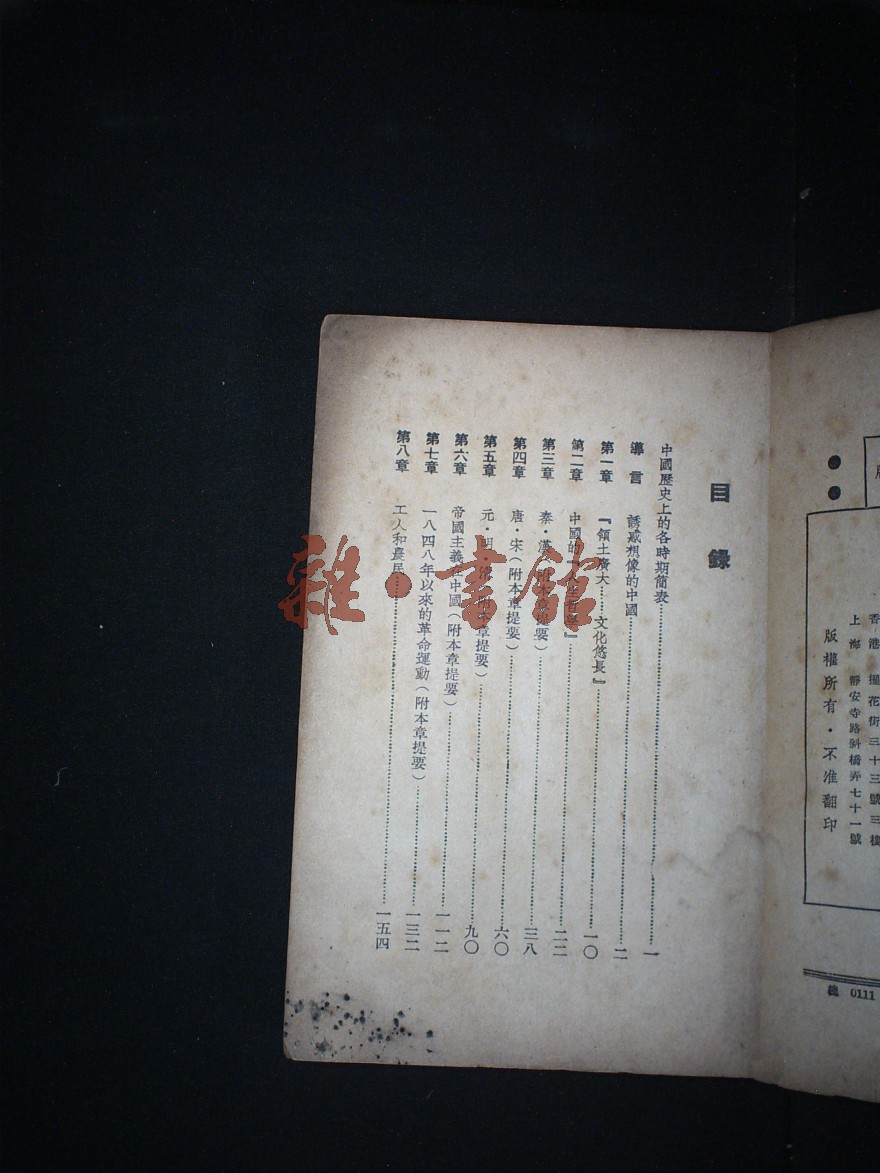 香港 擺花街三十三號三樓
上海 靜安寺路斜橋弄七十一號
版權所有·不准翻印
0111
目錄
中國歷史上的各時期簡表……一
導言 誘惑想像的中國……二
第一章 『領土廣大……文化悠長』……一〇
第二章 中國的『人……』……二二
第三章 秦·漢(附本章提要)……三八
第四章 唐·宋(附本章提要)……六〇
第五章 元·明·清(附本章提要)……九〇
第六章 帝國主義在中國(附本章提要)……一一二
第七章 一八四八年以來的革命運動(附本章提要)……一三二
第八章 工人和農民……一五四
雜·書館